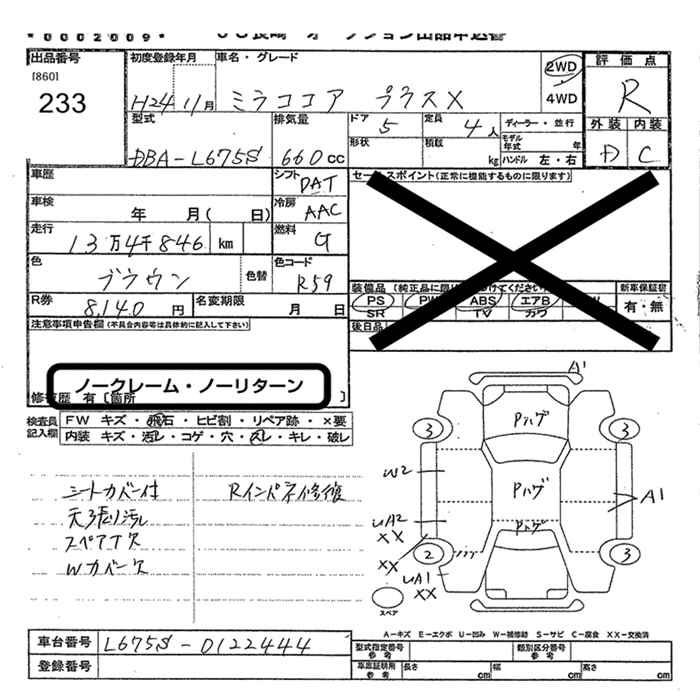 *0002009*
出品番号 初度登録年月 車名・グレード 2WD 評価点
[860]
233 H24 11月 ミラココア プラスX 4WD R
型式 排気量 ドア 5 定員 4人 ディーラー・並行 外装 内装
形状 積載 kg モデル年式 年
DBA-L675S 660cc ハンドル 左・右 D C
車歴 シフト DAT セールスポイント(正常に機能するものに限ります)
車検 年 月( 日) 冷房 AAC
走行 13万4千846 km 燃料 G
色 ブラウン 色替 色コード R59
装備品 新車保証書
PS PW ABS エアB 有・無
SR TV カワ
R券 8,140円 名変期限 月 日 後日品
注意事項申告欄(不具合内容等は具体的に記入して下さい)
ノークレーム・ノーリターン
修復歴 有[箇所 ]
検査員記入欄 FW キズ・飛石・ヒビ割・リペア跡・×要
内装 キズ・汚レ・コゲ・穴・スレ・キレ・破レ
A1
3 Pハゲ 3
W2 Pハゲ A1
シートカバー付 Rインパネ修復
天張り汚レ
UA2 XX Pハゲ
スペア欠
Wカバー欠
XX 2 3
UA1 XX
スペア
A-キズ E-エクボ U-凹み W-補修跡 S-サビ C-腐食 XX-交換済
車台番号 L675S-0122444 型式指定番号 参考 類別区分番号 参考
登録番号 車庫証明用 参考 長さ cm 幅 cm 高さ cm